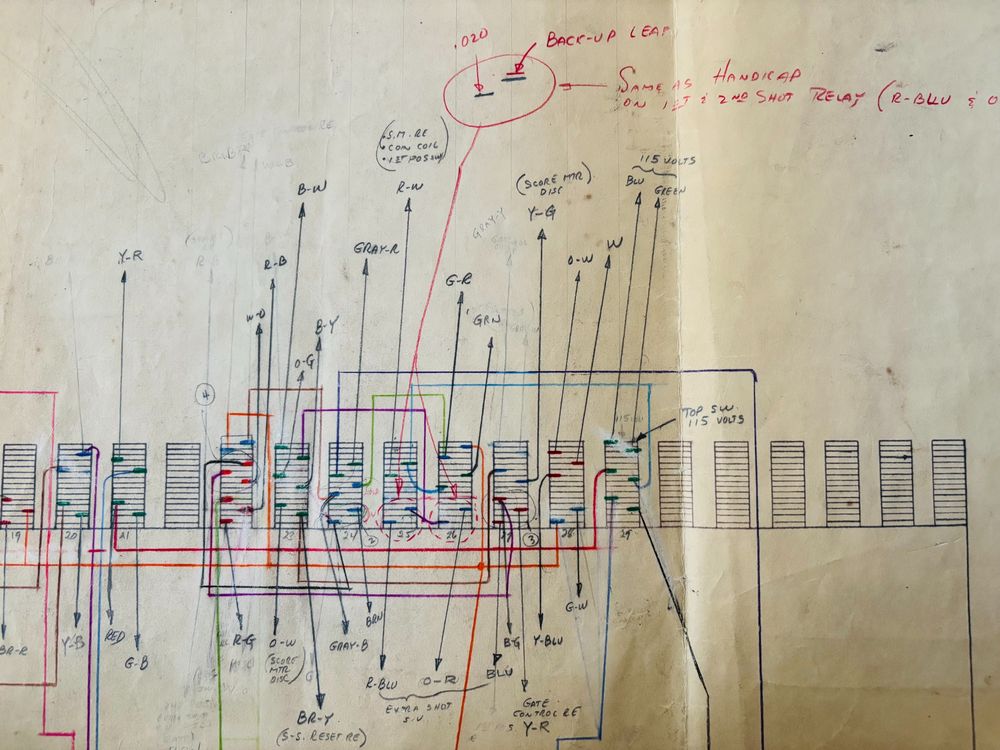 .020
BACK-UP LEAF
SAME AS HANDICAP
ON 1ST & 2ND SHOT RELAY (R-BLU & O
(S.M. RE
COIN COIL
B-W
R-W
(SCORE MTR.
DISC)
Y-G
115 VOLTS
BLU
GREEN
GRAY-Y
Y-R
R-B
GRAY-R
O-W
W
G-R
GRN
W-O
B-Y
O-G
4
TOP SW.
115 VOLTS
19
20
21
23
24
2
25
26
27
3
28
29
BR-R
Y-B
RED
G-B
R-G
O-W
(SCORE
MTR
DISC)
GRAY-B
BRN
B-G
Y-BLU
G-W
R-BLU
O-R
BLU
EXTRA SHOT
S.U.
BR-Y
(S-S. RESET RE)
GATE
CONTROL RE
Y-R